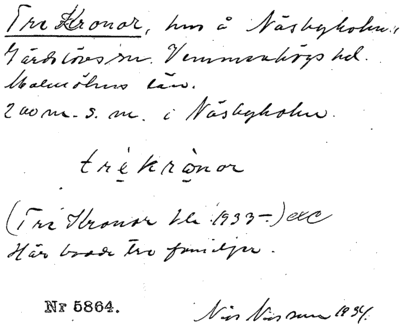 Tre Kronor, hus å Näsbyholm,
Gärdslövs sn. Vemmenhögs hd.
Malmöhus län.
200 m. s. m. i Näsbyholm.
trè krònor
(Tre Kronor 1933-)
Här bodde tre familjer.
Nr 5864.
Nils Nilsson 1934.